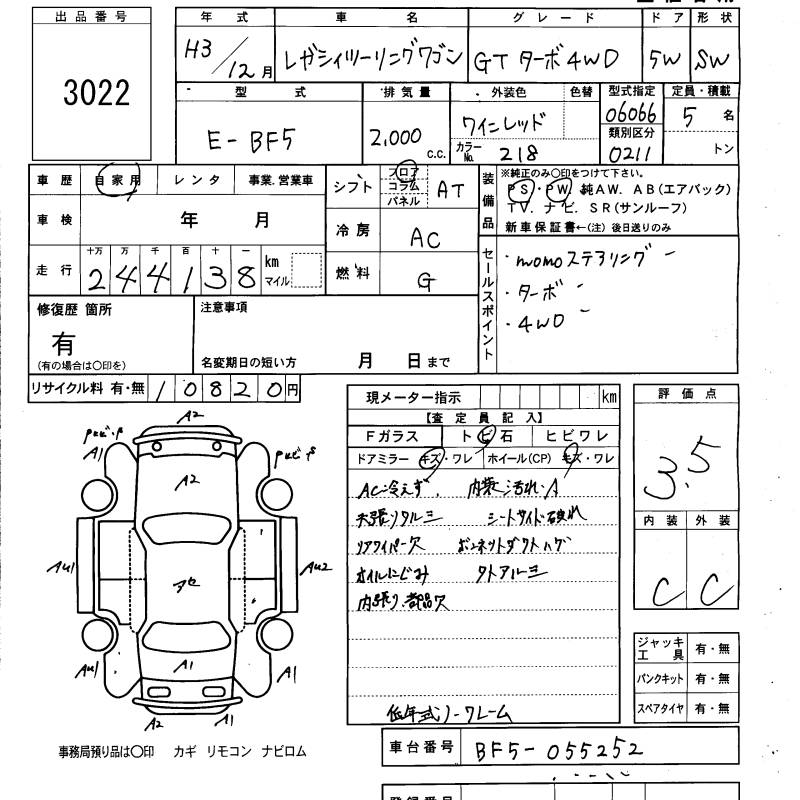 出品番号
3022
年式 車名 グレード ドア 形状
H3/12月 レガシィツーリングワゴン GT ターボ 4WD 5W SW
型式 排気量 外装色 色替 型式指定 定員・積載
E-BF5 2,000 c.c. ワインレッド 06066 5 名
カラーNo. 218 類別区分 0211 トン
車歴 自家用 レンタ 事業.営業車
車検 年 月
走行 十万 万 千 百 十 一
244138 km マイル
シフト フロア コラム パネル AT
冷房 AC
燃料 G
装備品
※純正のみ〇印をつけて下さい。
PS・PW. 純AW. AB(エアバック)
TV. ナビ. SR(サンルーフ)
新車保証書←(注) 後日送りのみ
セールスポイント
・momoステアリング
・ターボ
・4WD
修復歴 箇所
有
(有の場合は〇印を)
注意事項
名変期日の短い方 月 日まで
リサイクル料 有・無 10820円
現メーター指示 km
【査定員記入】
Fガラス トビ石 ヒビワレ
ドアミラー キズ・ワレ ホイール(CP) キズ・ワレ
AC冷えず. 内装汚れ・A
天張りタルミ シートサイド破れ
リアワイパー欠 ボンネットダクトハゲ
オイルにじみ タイヤルミ
内張り.部品欠
低年式ノークレーム
評価点
3.5
内装 外装
C C
ジャッキ工具 有・無
パンクキット 有・無
スペアタイヤ 有・無
A2
A1
A2
Au1
Au2
Au1
A1
A1
A2
A1
事務局預り品は〇印 カギ リモコン ナビロム
車台番号 BF5-055252